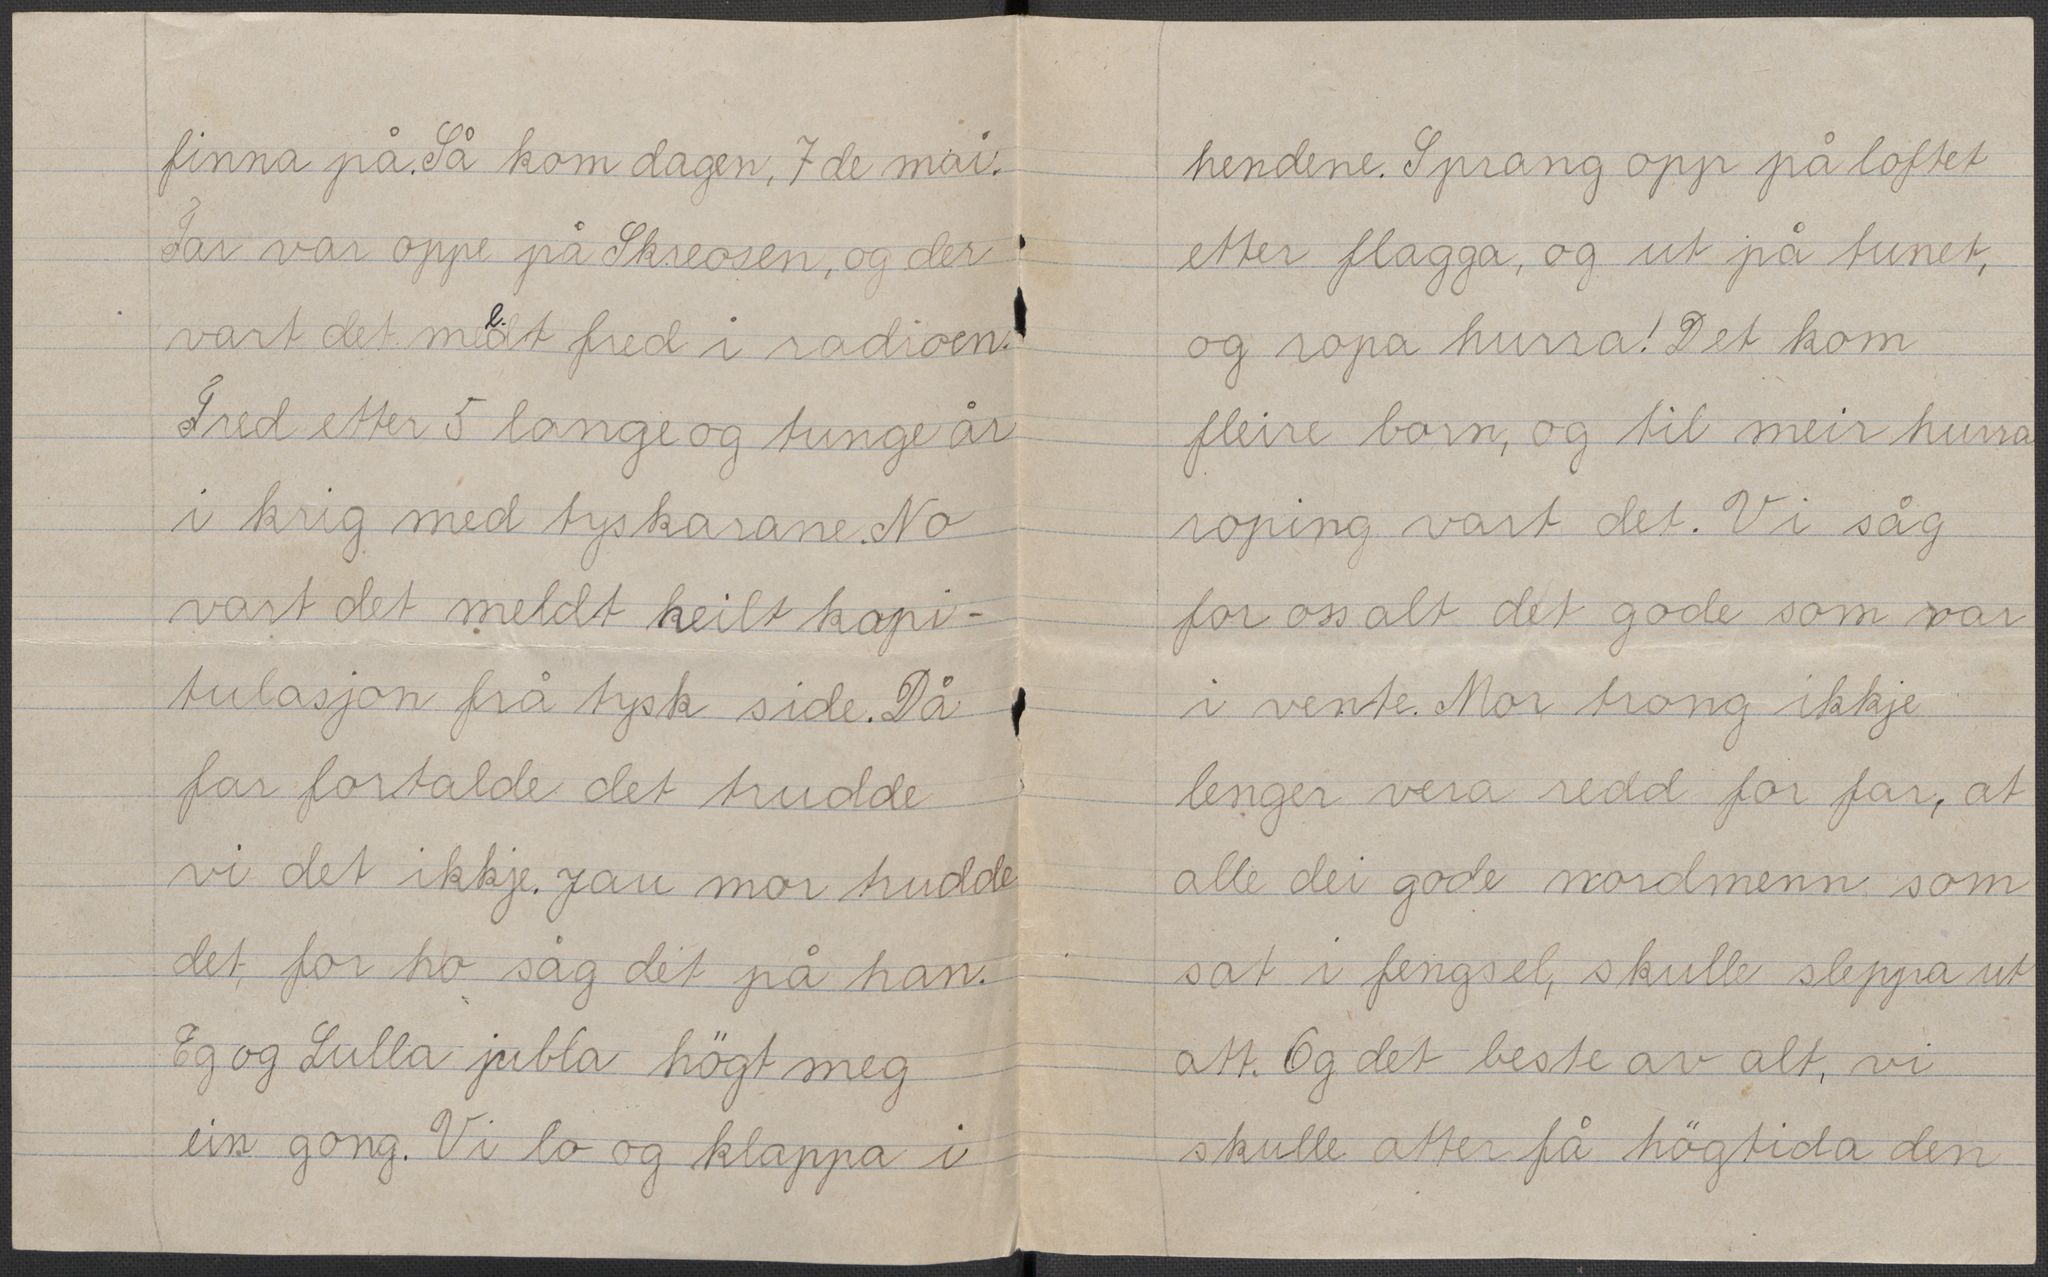 finna på. Så kom dagen, 7de mai.
Far var oppe på Skreosen, og der
vart det meldt fred i radioen.
Fred etter 5 lange og tunge år
i krig med tyskarane. No
vart det meldt heilt kapi-
tulasjon frå tysk side. Då
far fortalde det trudde
vi det ikkje. Jau mor trudde
det, for ho såg det på han.
Eg og Lulla jubla högt meg
ein gong. Vi lo og klappa i
hendene. Sprang opp på loftet
etter flagga, og ut på tunet,
og ropa hurra! Det kom
fleire born, og til meir hurra
roping vart det. Vi såg
for oss alt det gode som var
i vente. Mor trong ikkje
lenger vera redd for far, at
alle dei gode nordmenn som
sat i fengsel, skulle sleppa ut
att. Og det beste av alt, vi
skulle atter få högtida den